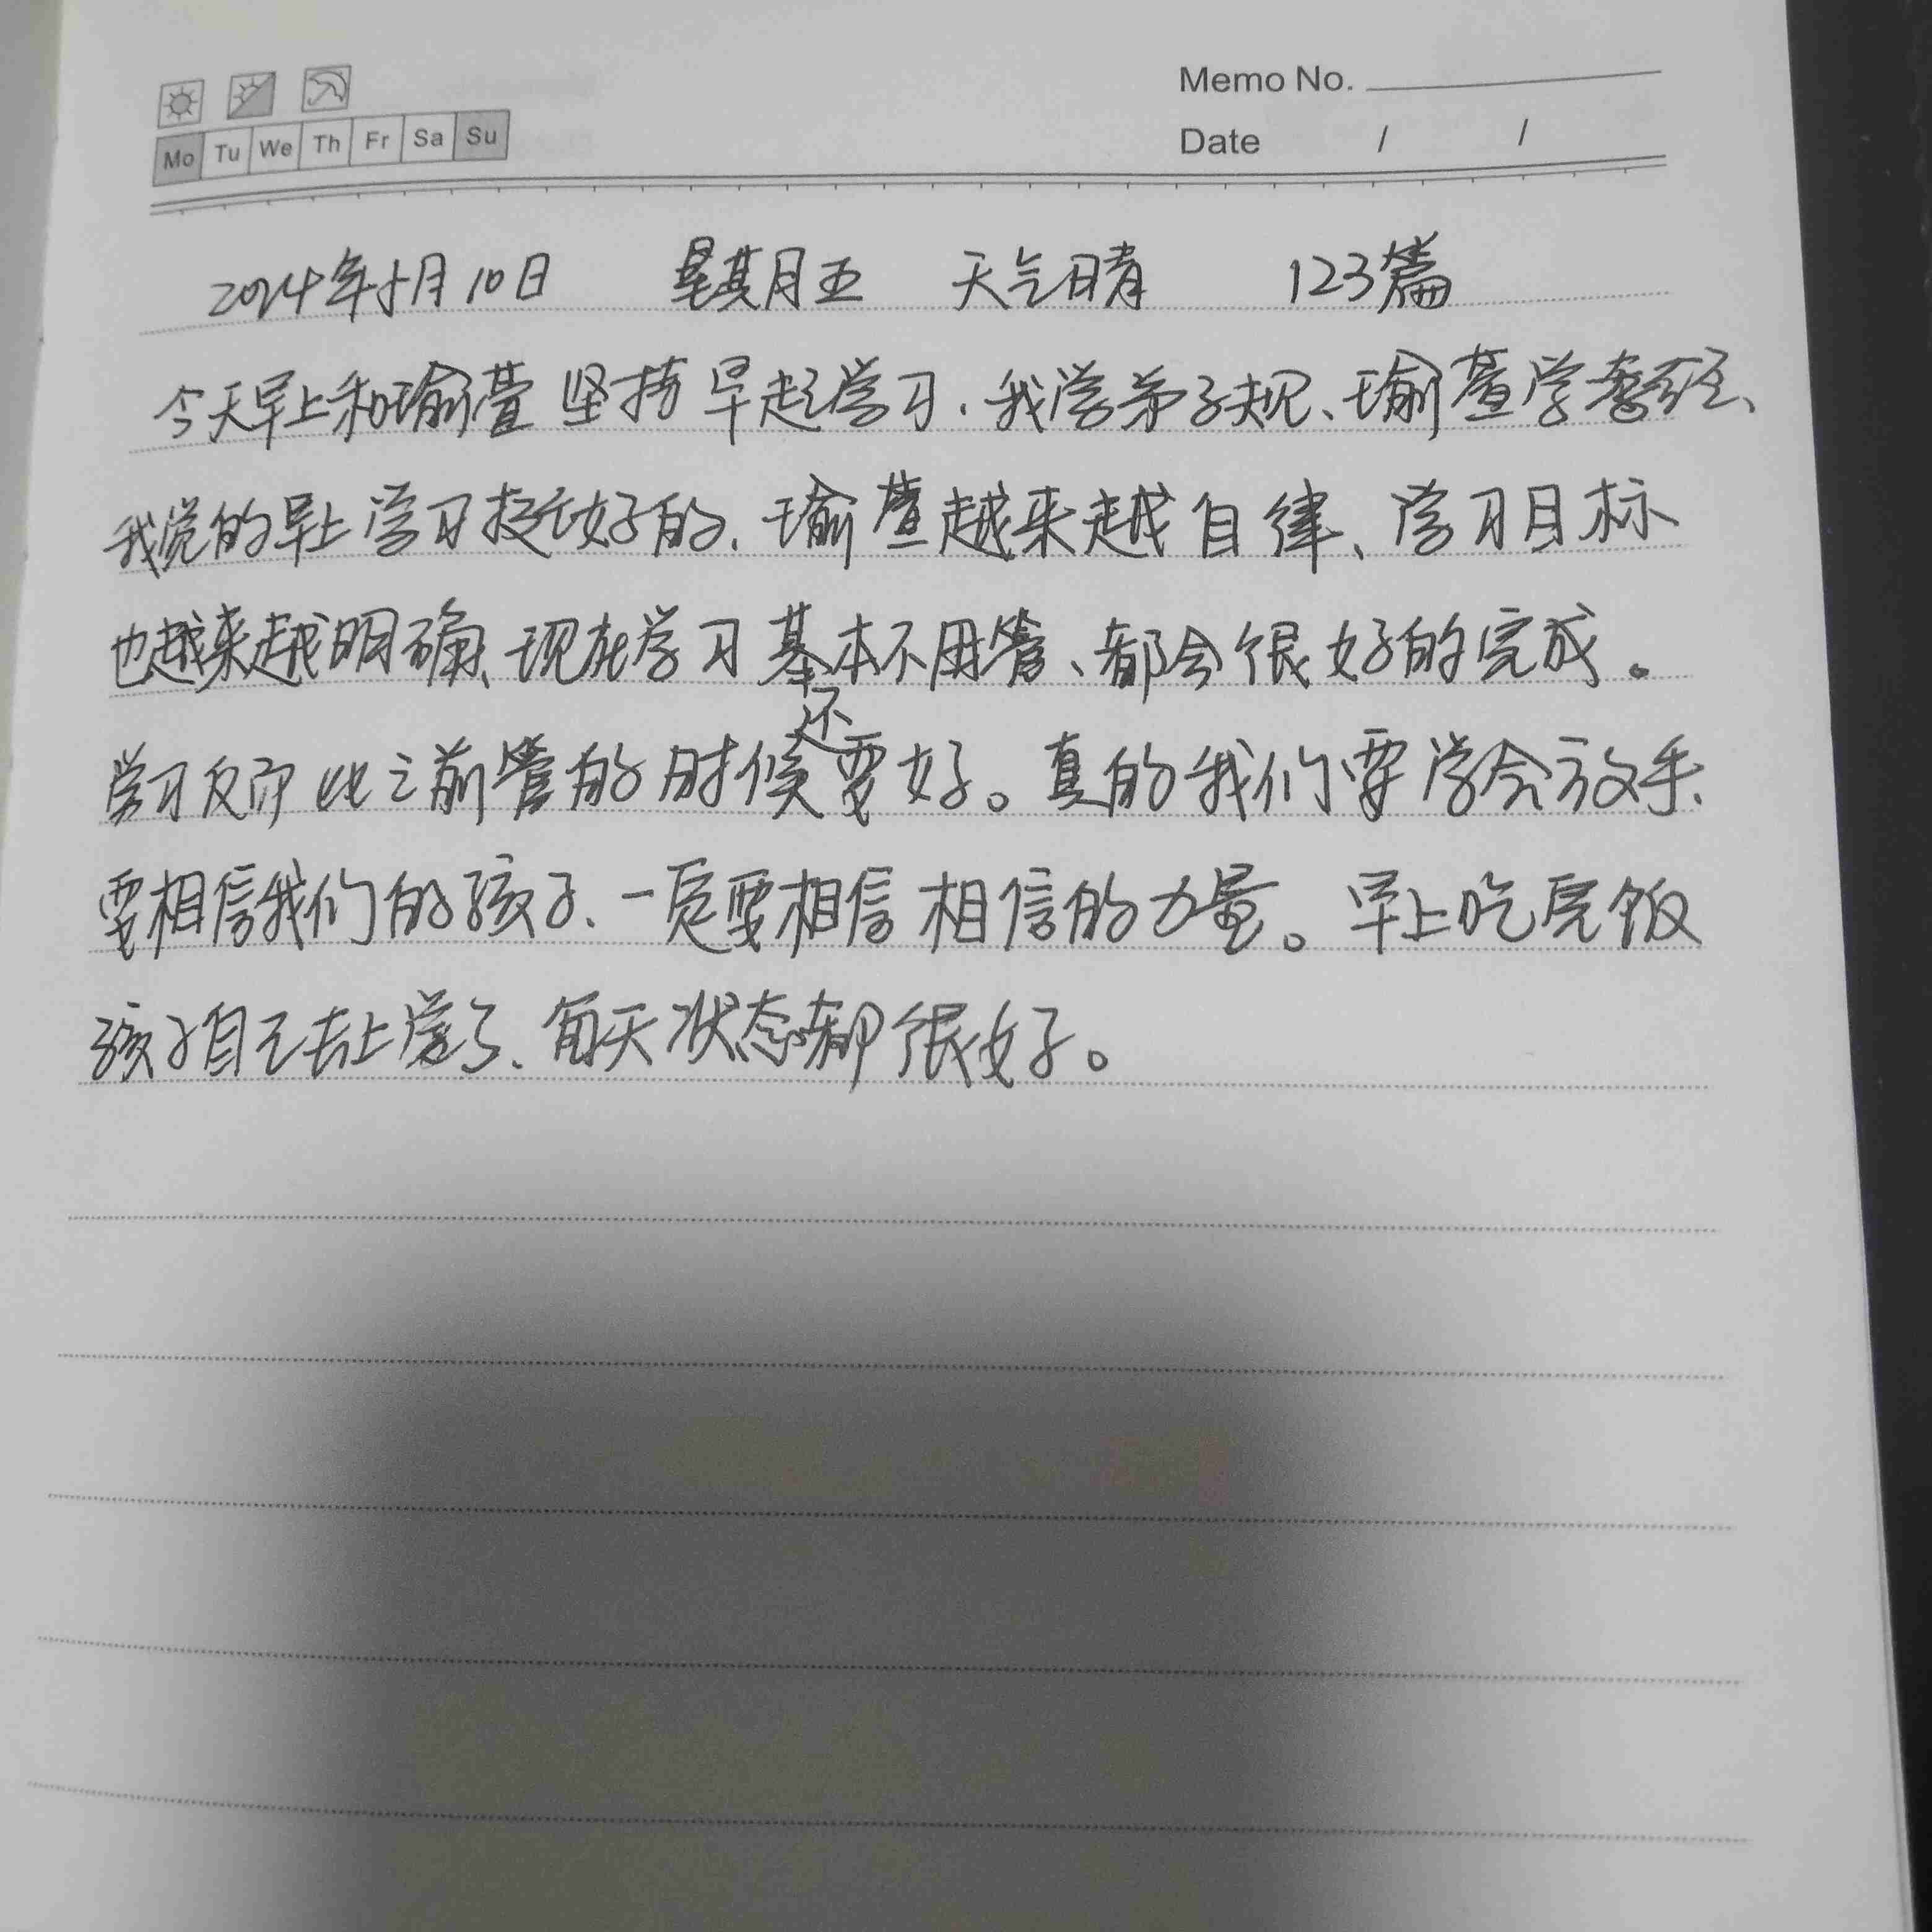 Memo No.
Mo Tu We Th Fr Sa Su
Date / /
2024年5月10日 星期五 天气晴 123篇
今天早上和瑜萱坚持早起学习.我学弟子规、瑜萱学孝经、
我觉的早上学习挺好的.瑜萱越来越自律、学习目标
也越来越明确、现在学习基本不用管、都会很好的完成。
学习反而比之前管的时候还要好。真的我们要学会放手.
要相信我们的孩子.一定要相信相信的力量。早上吃完饭
孩子自己去上学了、每天状态都很好。